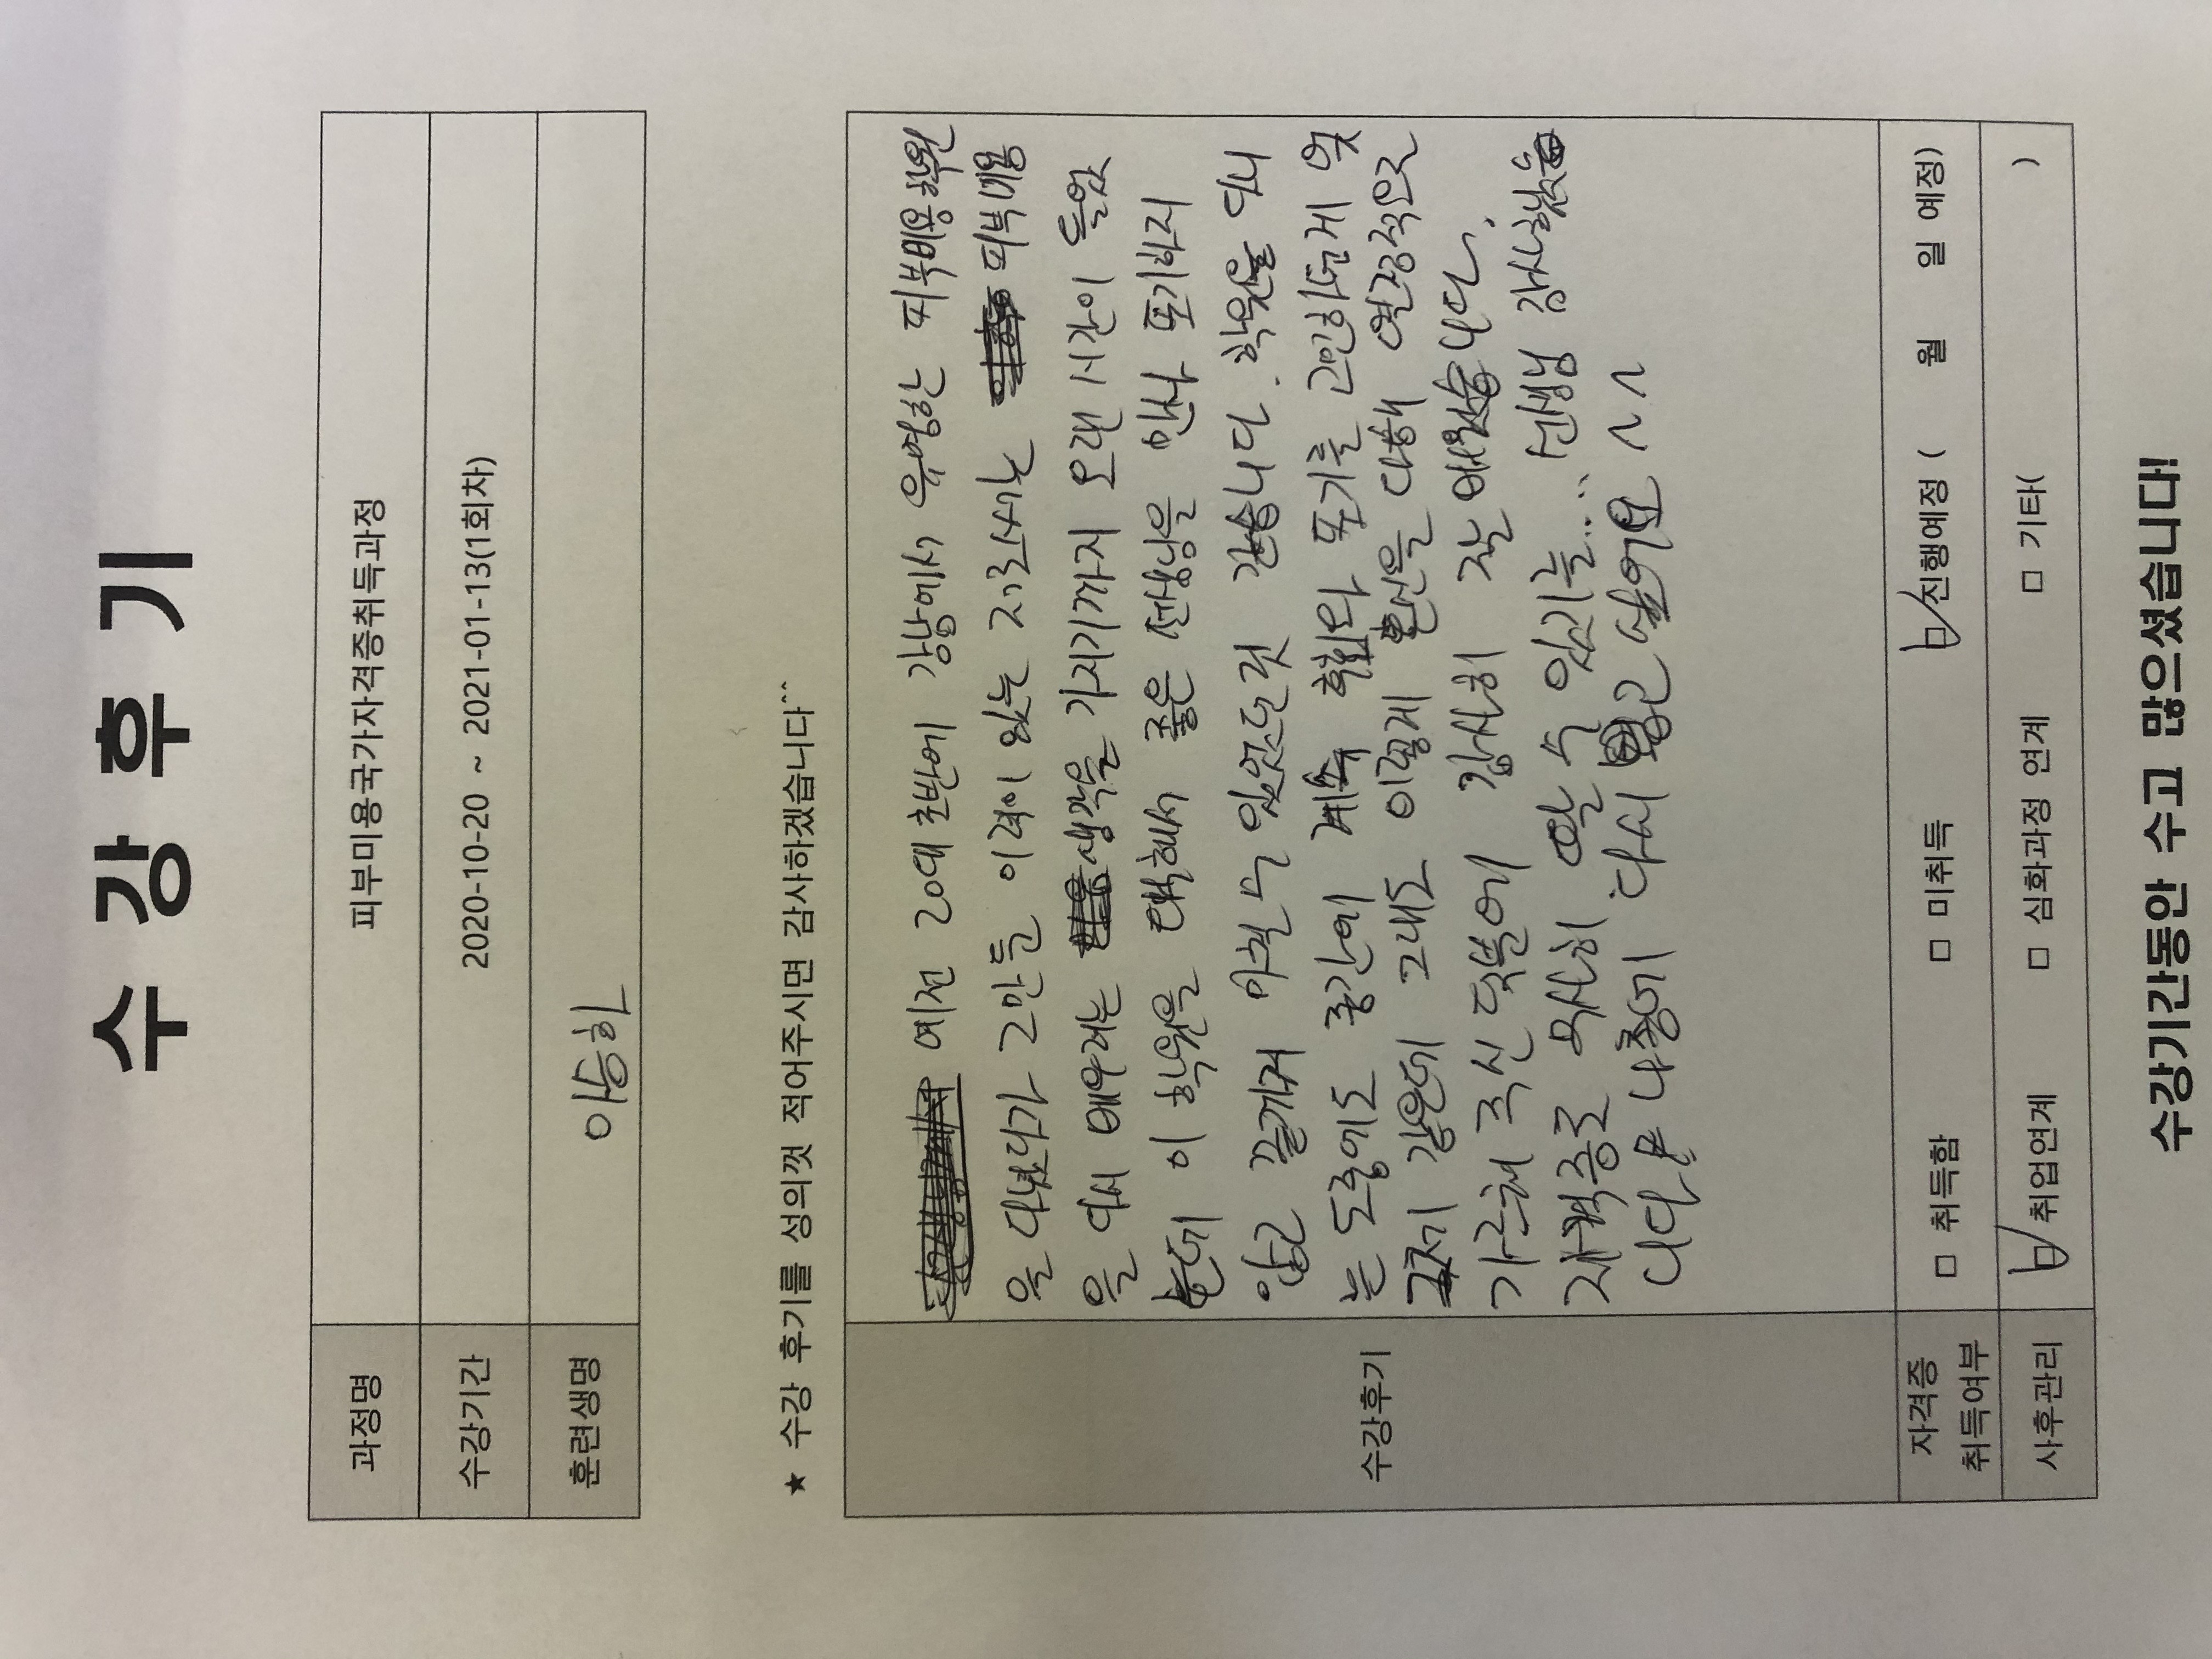 수 강 후 기
과정명 피부미용국가자격증취득과정
수강기간 2020-10-20 ~ 2021-01-13(1회차)
훈련생명 이승하
★ 수강 후기를 성의껏 적어주시면 감사하겠습니다^^
수강후기
예전 20대 초반에 강남에서 유명한 피부미용학원
을 다녔다가 그만둔 이력이 있는 저로서는 피부미용
을 다시 배우려는 생각을 가지기까지 오래 시간이 들었
는데 이 학원을 택해서 좋은 선생님을 만나 포기하지
않고 끝까지 마칠 수 있었던 것 같습니다. 학원을 다니
는 도중에도 중간에 계속 후회와 포기를 고민하던게 엊
그저께 같은데 그래도 이렇게 혼신을 다해 열정적으로
가르쳐 주신 덕분에 감사히 잘 배웠습니다.
자격증도 무사히 딸 수 있기를... 선생님 감사했습
니다 나중에 다시 뵙고 싶어요 ^^
자격증 취득여부 □ 취득함 □ 미취득 ☑ 진행예정 ( 월 일 예정)
사후관리 ☑ 취업연계 □ 심화과정 연계 □ 기타( )
수강기간동안 수고 많으셨습니다!